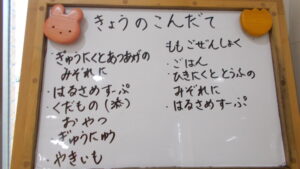 きょうのこんだて
・ぎゅうにくとあつあげの
みぞれに
・はるさめすーぷ
・くだもの(柿)
おやつ
ぎゅうにゅう
・やきいも
ももごぜんしょく
・ごはん
・ひきにくととうふの
みぞれに
・はるさめすーぷ